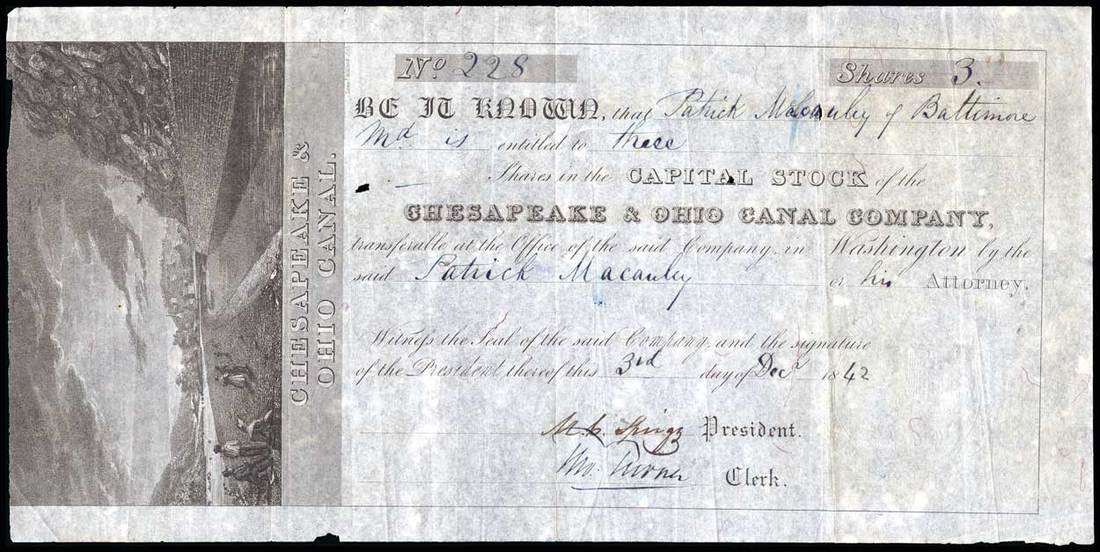 CHESAPEAKE &
OHIO CANAL.
No 228
Shares 3.
BE IT KNOWN, that Patrick Macauley of Baltimore
Md is entitled to three
Shares in the CAPITAL STOCK of the
CHESAPEAKE & OHIO CANAL COMPANY,
transferable at the Office of the said Company, in Washington by the
said Patrick Macauley or his Attorney.
Witness the Seal of the said Company, and the signature
of the President thereof this 3rd day of Decr 1842
M. C. Sprigg President.
Tho. Turner Clerk.